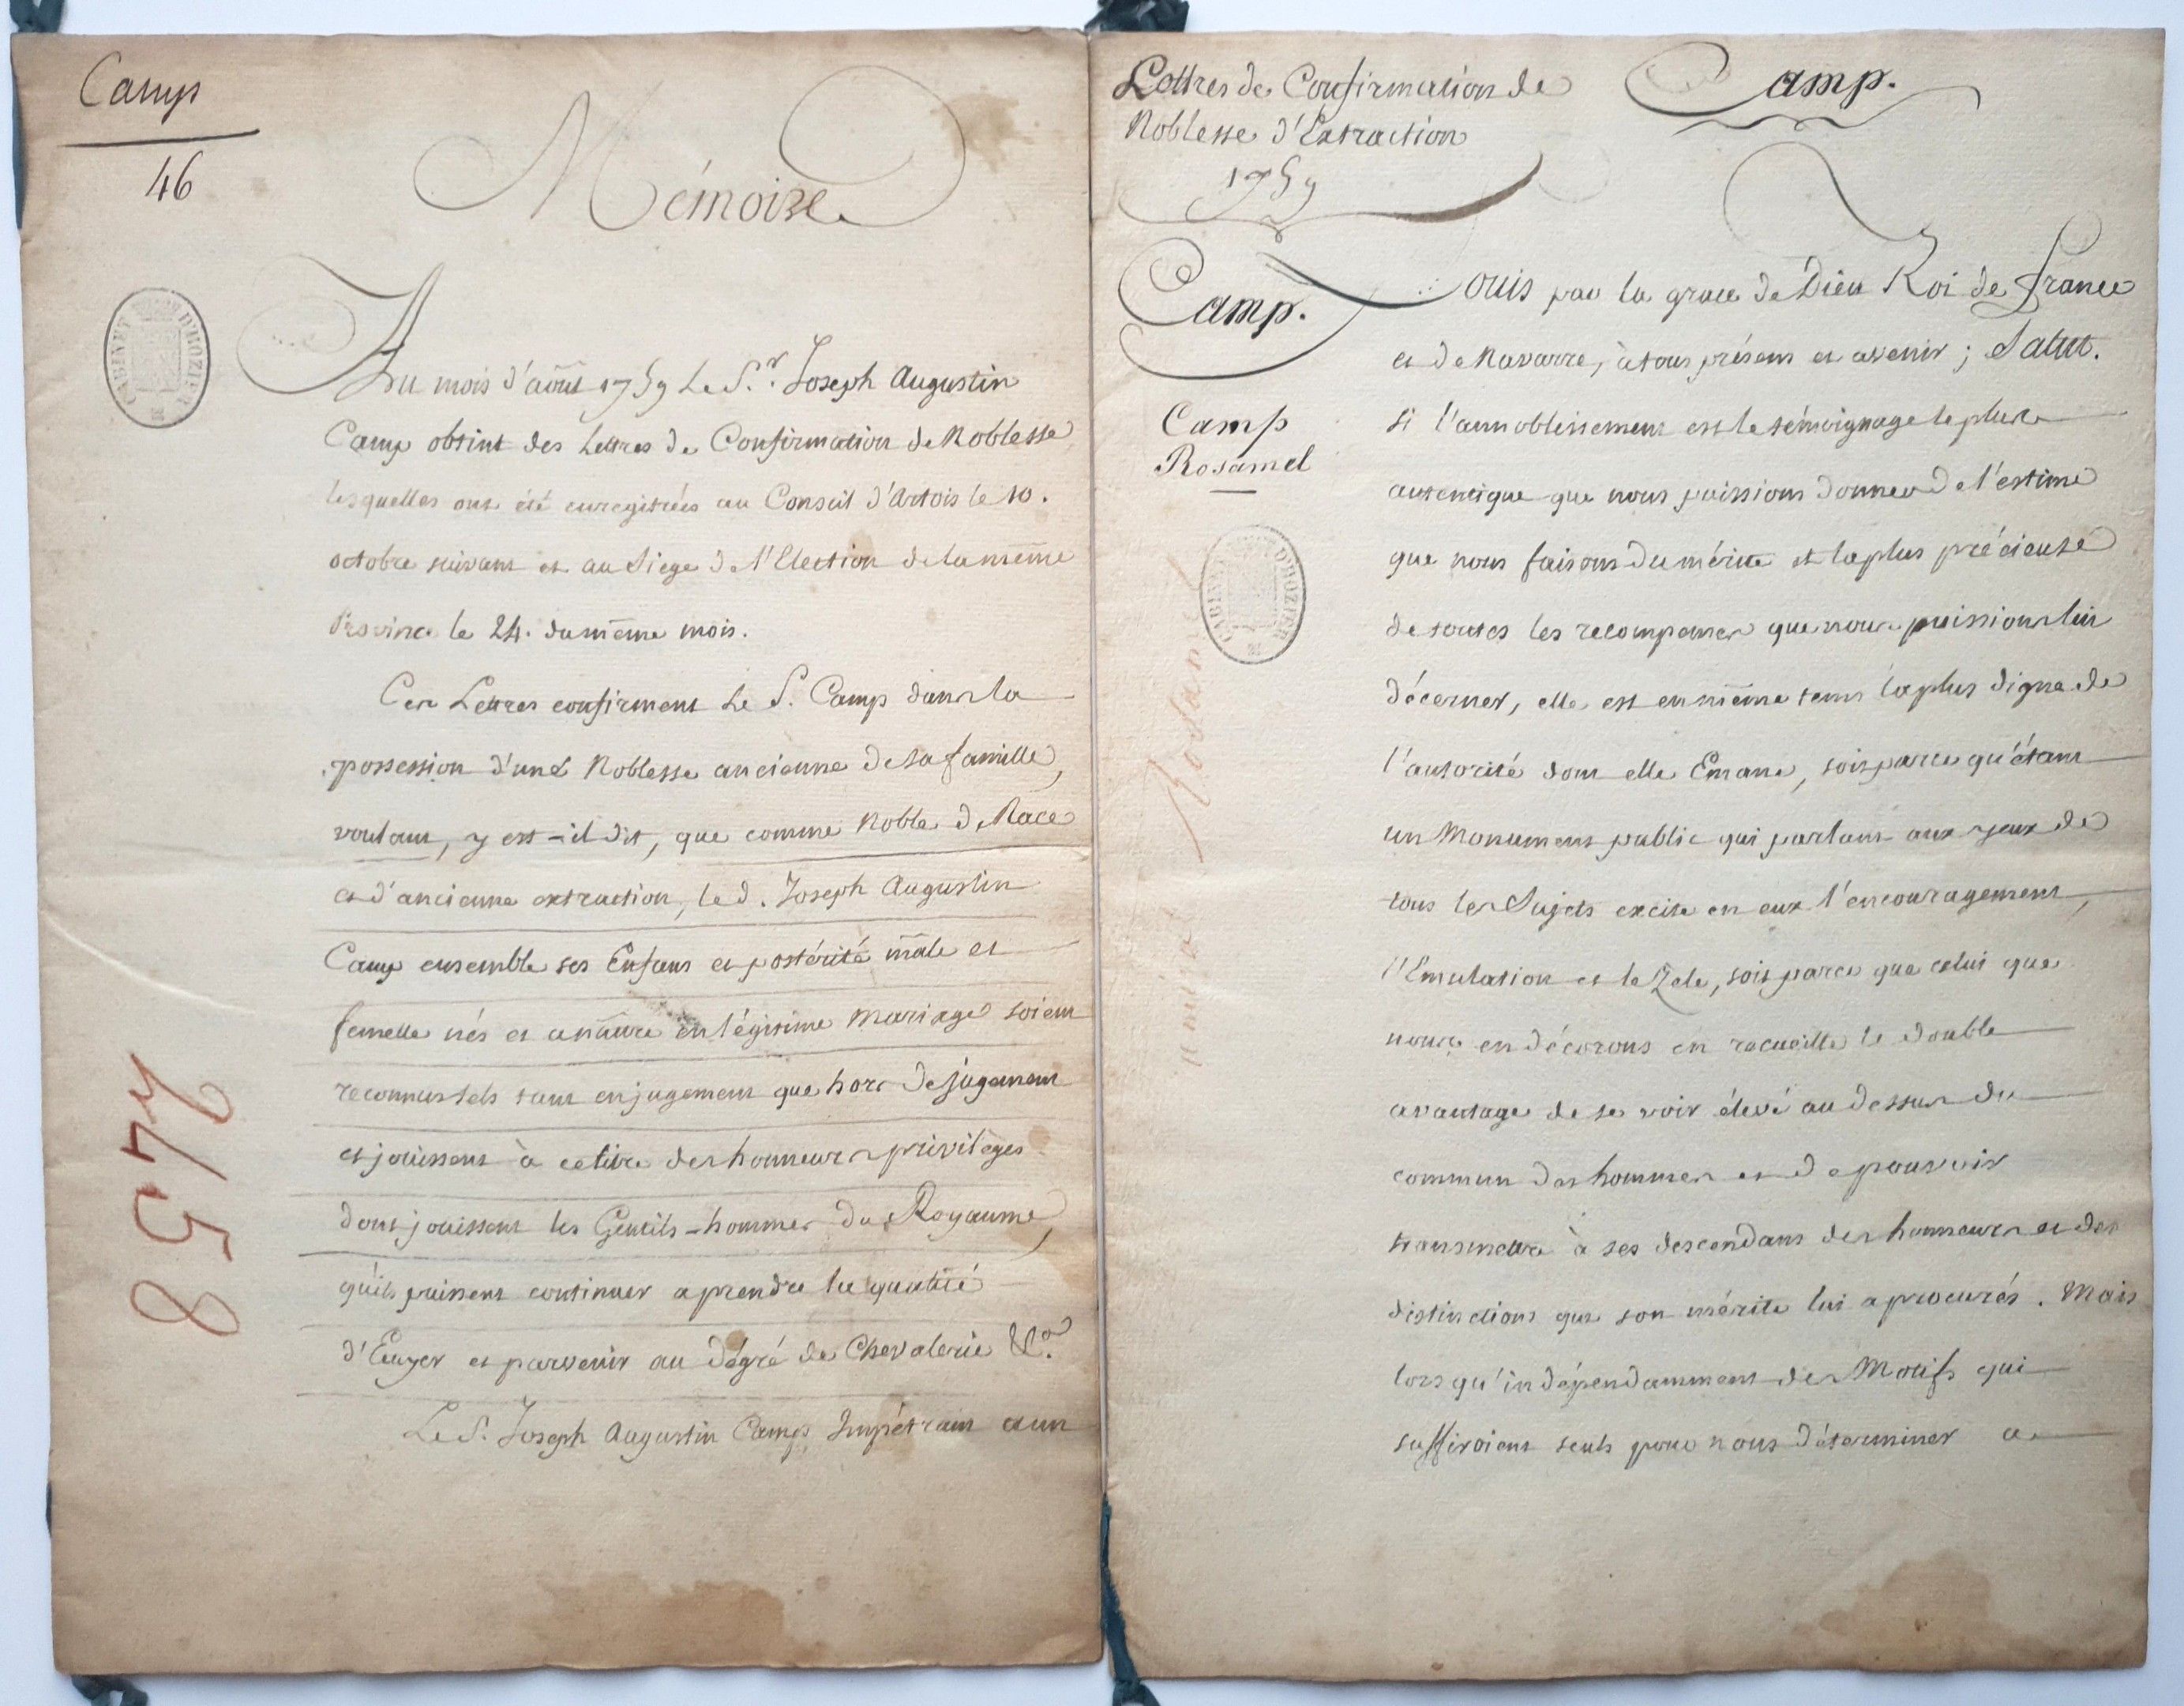 Camp
46
CABINET D'HOZIER
Mémoire
Au mois d'août 1759 Le S.r Joseph Augustin
Camp obtint des Lettres de Confirmation de Noblesse
lesquelles ont été enregitrées au Conseil d'Artois le 10.
octobre suivant et au Siege de l'Election de la même
Province le 24. du même mois.
Ces Lettres confirment Le S. Camp dans la
possession d'une Noblesse ancienne de sa famille,
voulant, y est-il dit, que comme Noble de Race
et d'ancienne extraction, le d. Joseph Augustin
Camp ensemble ses Enfans et postérité mâle et
femelle nés et anaitre en légitime Mariage soient
reconnus tels tant en jugement que hors de jugement
et jouissent à ce titre des honneurs privilèges
dont jouissent les Gentils-hommes du Royaume,
qu'ils puissent continuer a prendre la qualité
d'Ecuyer et parvenir au dégré de Chevalerie &.a
Le S. Joseph Augustin Camp Impétrant a un
2458
Lettres de Confirmation de
Noblesse d'Extraction
1759
Camp.
Camp.
Camp
Rosamel
CABINET D'HOZIER
Rosamel
Louis par la grace de Dieu Roi de france
et de Navarre, à tous présens et avenir; Salut.
Si l'annoblissement est le témoignage le plus
autentique que nous puissions donner de l'estime
que nous faisons du mérite et la plus précieuse
de toutes les recompenses que nous puissions lui
décerner, elle est en même tems la plus digne de
l'autorité dont elle Emane, soit parce qu'étant
un Monument public qui parlant aux yeux de
tous les Sujets excite en eux l'encouragement,
l'Emulation et le Zele, soit parce que celui que
nous en décorons en racueille le double
avantage de se voir élevé au dessus du
commun des hommes et de pouvoir
transmettre à ses descendans des honneurs et des
distinctions que son mérite lui a procurés. Mais
lors qu'indépendamment des Motifs qui
suffiroient seuls pour nous déterminer a